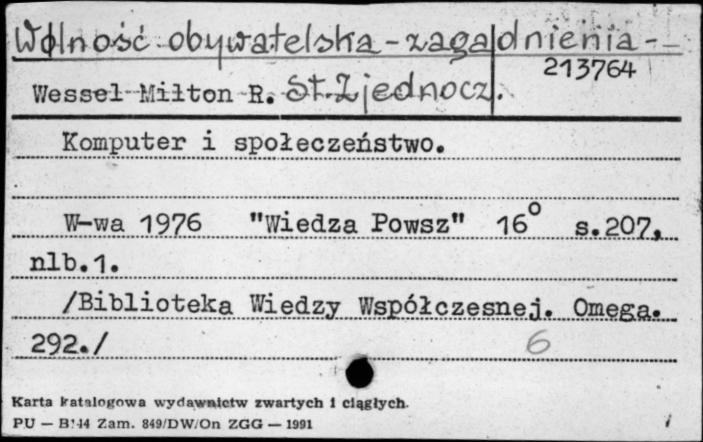 Wolność obywatelska - zagadnienia -
213764
Wessel Milton R. St. Zjednocz.
Komputer i społeczeństwo.
W-wa 1976 "Wiedza Powsz" 16° s.207,
nlb.1.
/Biblioteka Wiedzy Współczesnej. Omega.
292./ 6
Karta katalogowa wydawnictw zwartych i ciągłych.
PU — B/44 Zam. 849/DW/On ZGG — 1991